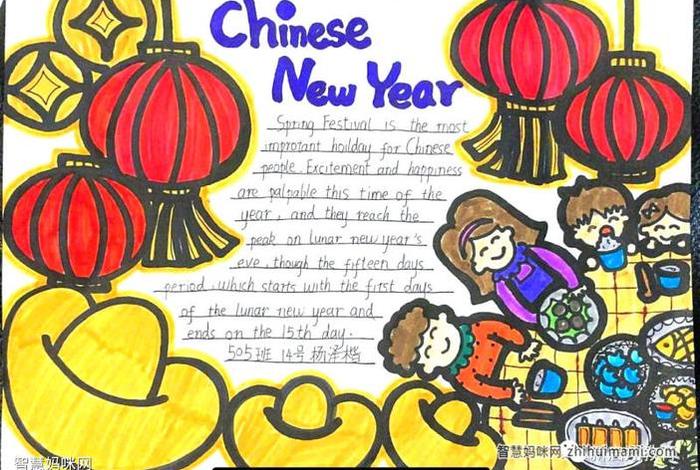 Chinese
New Year
Spring Festival is the most
improtant hoilday for Chinese
people. Excitement and happiness
are palpable this time of the
year, and they reach the
peak on lunar new year's
eve. though the fifteen days
period, which starts with the first days
of the lunar new year and
ends on the 15th day.
505班 14号 杨泽楷
智慧妈咪网
智慧妈咪网 zhihuimami.com